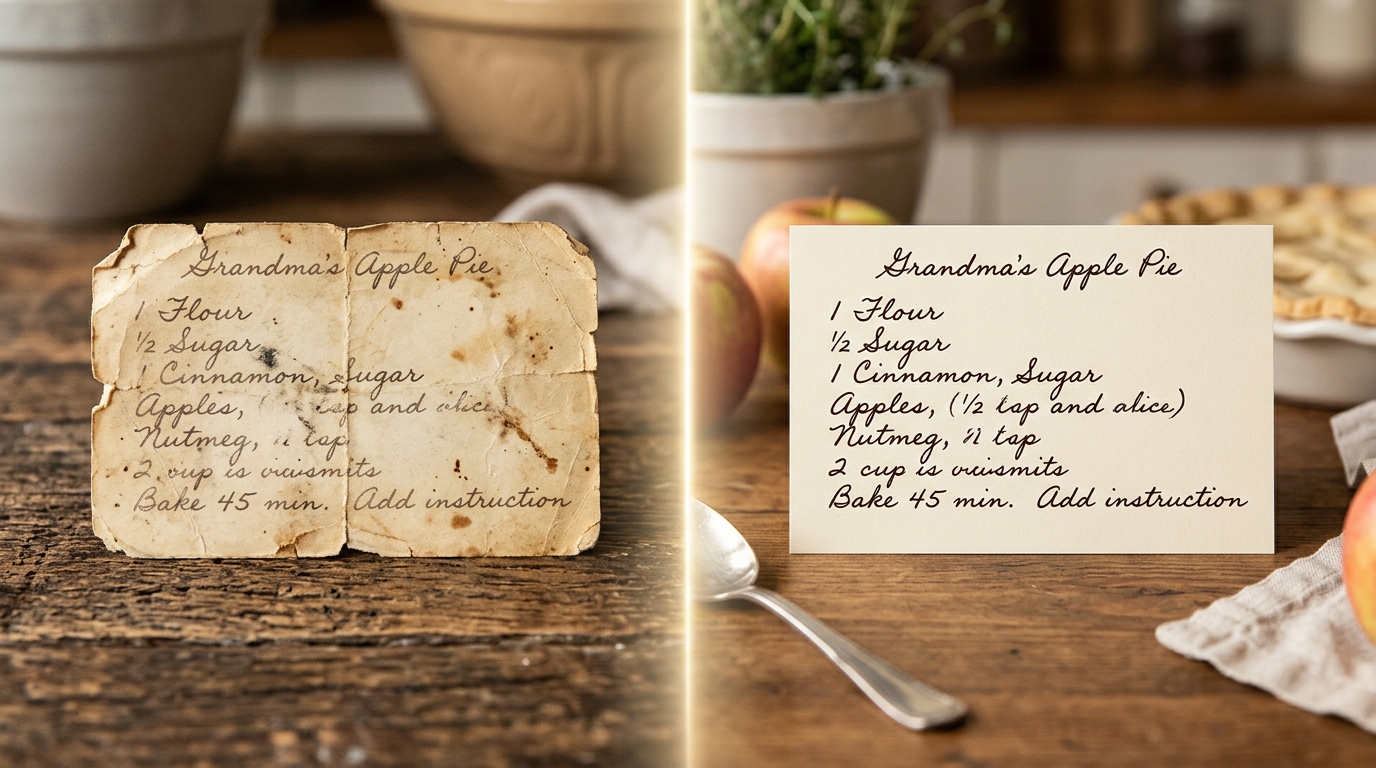 Grandma's Apple Pie
1 Flour
½ Sugar
1 Cinnamon, Sugar
Apples, tsp and
Nutmeg, tsp
2 cup is
Bake 45 min. Add instruction
Grandma's Apple Pie
1 Flour
½ Sugar
1 Cinnamon, Sugar
Apples, (½ tsp and alice)
Nutmeg, tsp
2 cup is
Bake 45 min. Add instruction